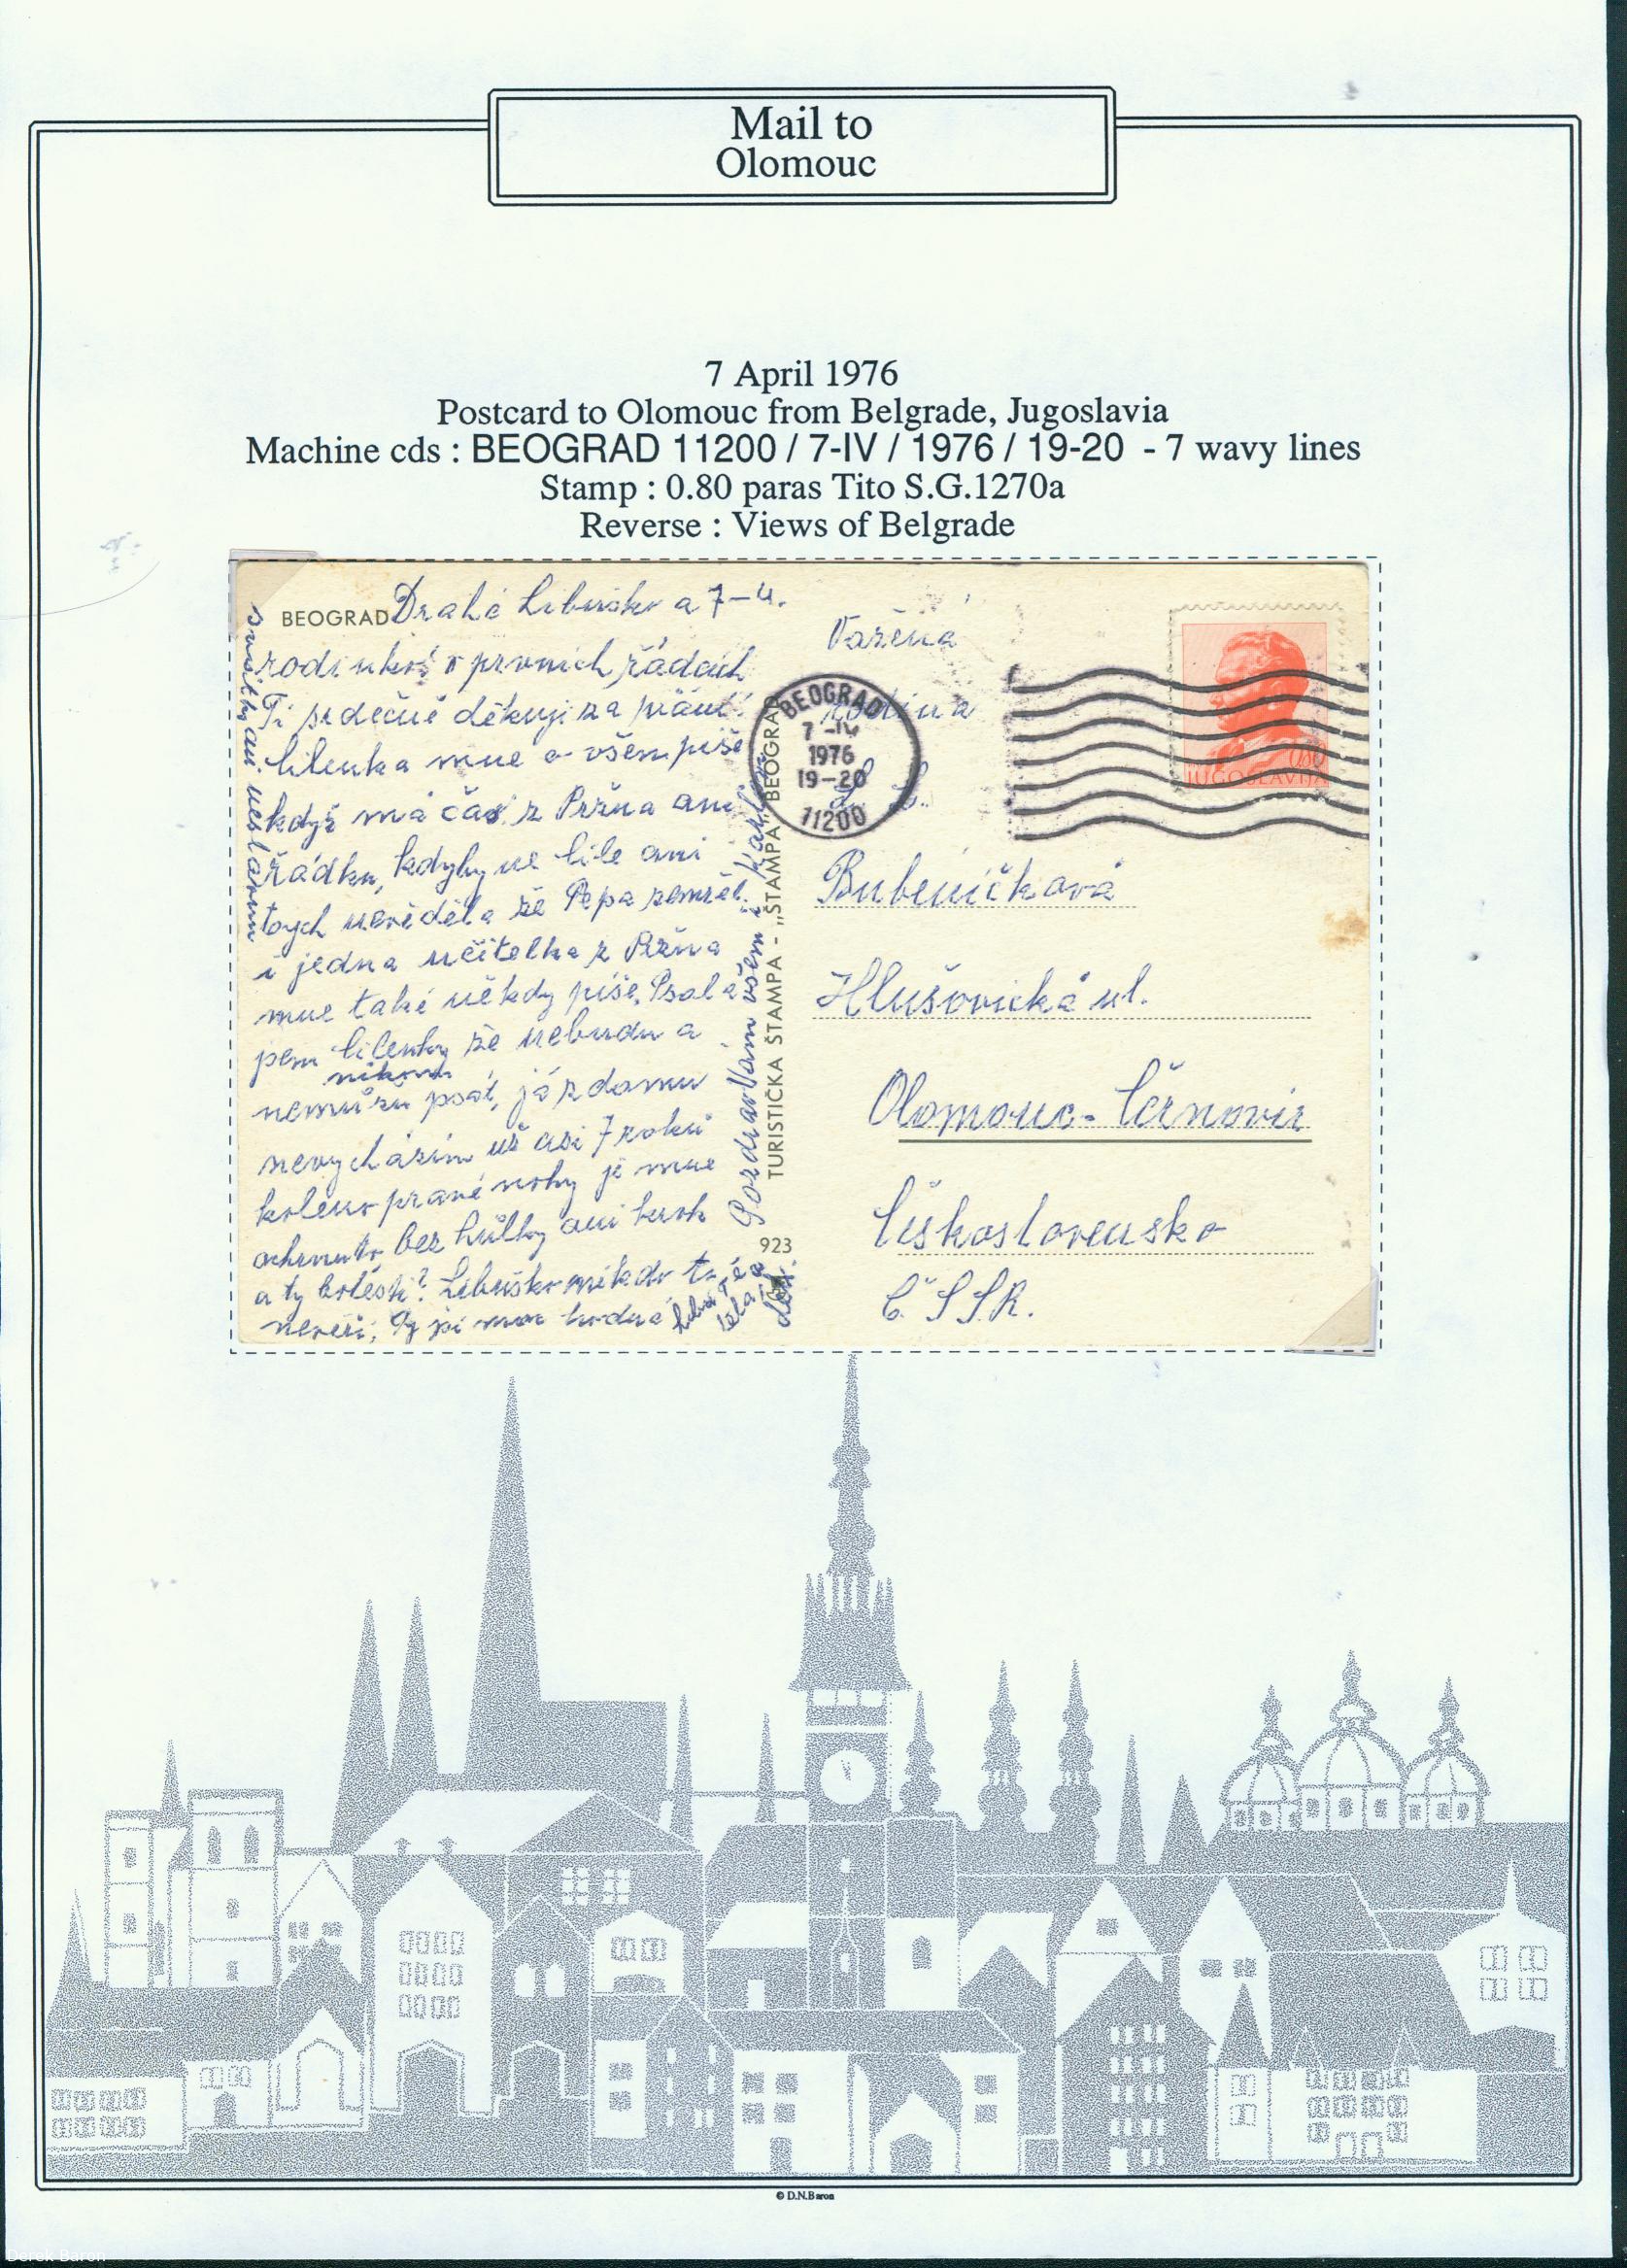 Mail to
Olomouc
7 April 1976
Postcard to Olomouc from Belgrade, Jugoslavia
Machine cds : BEOGRAD 11200 / 7-IV / 1976 / 19-20 - 7 wavy lines
Stamp : 0.80 paras Tito S.G.1270a
Reverse : Views of Belgrade
BEOGRAD Drahé Libuško a 7-4.
v prvních řádcích
Ti srdečně děkuji za přání.
Lilenka mne o všem píše
když má čas z Pržna ani
řádku, kdyby ne Lile ani
bych nevěděla že Pepa zemřel.
i jedna učitelka z Pržna
mne také někdy píše, Psala
jsem Lilenky že nebudu a
nikomu
nemůžu psát, já z domu
nevycházím už asi 7 roků
koleno pravé nohy je mne
ochrnuto, bez hůlky ani krok
a ty bolesti? Libuško nikdo to
nevěří, Ty jsi moc hodná
Pozdrav Vám všem
TURISTIČKA ŠTAMPA - „ŠTAMPA" BEOGRAD
923
BEOGRAD
7-IV
1976
19-20
11200
0,80
JUGOSLAVIJA
Vážená
rodina
Bubeníčková
Hlušovická ul.
Olomouc-Černovír
Československo
Č.S.S.R.
© D.N.Baron
Derek Baron